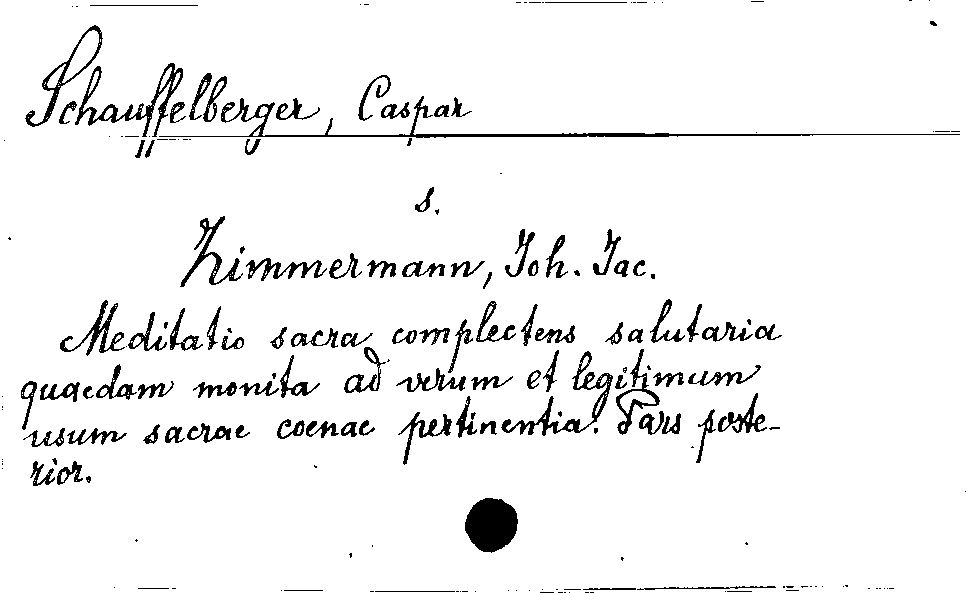 Schauffelberger, Caspar
s.
Zimmermann, Joh. Jac.
Meditatio sacra complectens salutaria
quaedam monita ad verum et legitimum
usum sacrae coenae pertinentia. Pars poste-
rior.